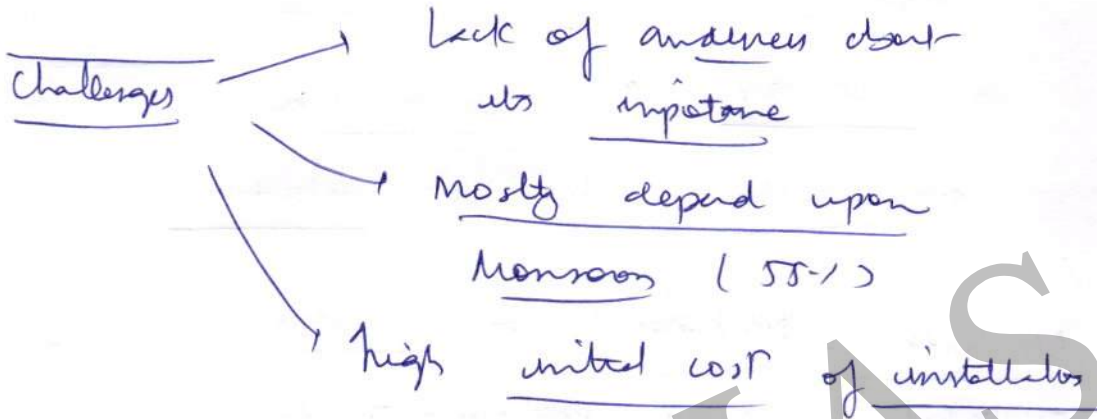 Challenges
Lack of awareness about
its importance
Mostly depend upon
Monsoon (55%)
high initial cost of installation
IAS